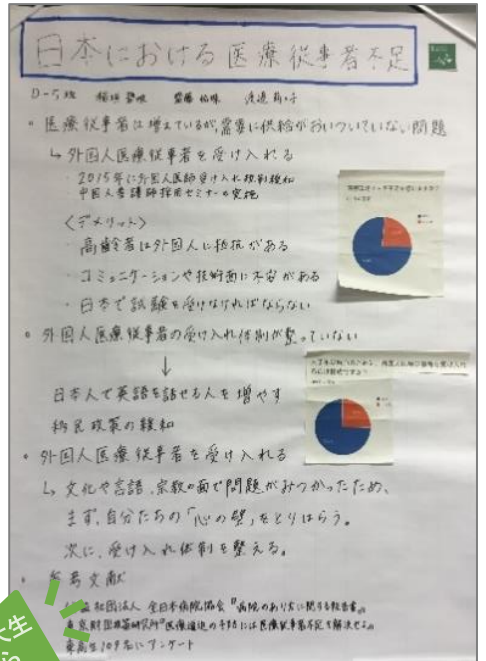 日本における医療従事者不足
D-5班
・医療従事者は増えているが、需要に供給がおいついていない問題
↳外国人医療従事者を受け入れる
・2015年に外国人医師受け入れ規制緩和
・中国人看護師採用セミナーの実施
〈デメリット〉
・高齢者は外国人に抵抗がある
・コミュニケーションや技術面に不安がある
・日本で試験を受けなければならない
・外国人医療従事者の受け入れ体制が整っていない
↓
日本人で英語を話せる人を増やす
移民政策の緩和
・外国人医療従事者を受け入れる
↳文化や言語、宗教の面で問題がみつかったため、
まず、自分たちの「心の壁」をとりはらう。
次に、受け入れ体制を整える。
・参考文献
社団法人 全日本病院協会『病院のあり方に関する報告書』
医療従事者不足を解決せよ』
東高生109名にアンケート